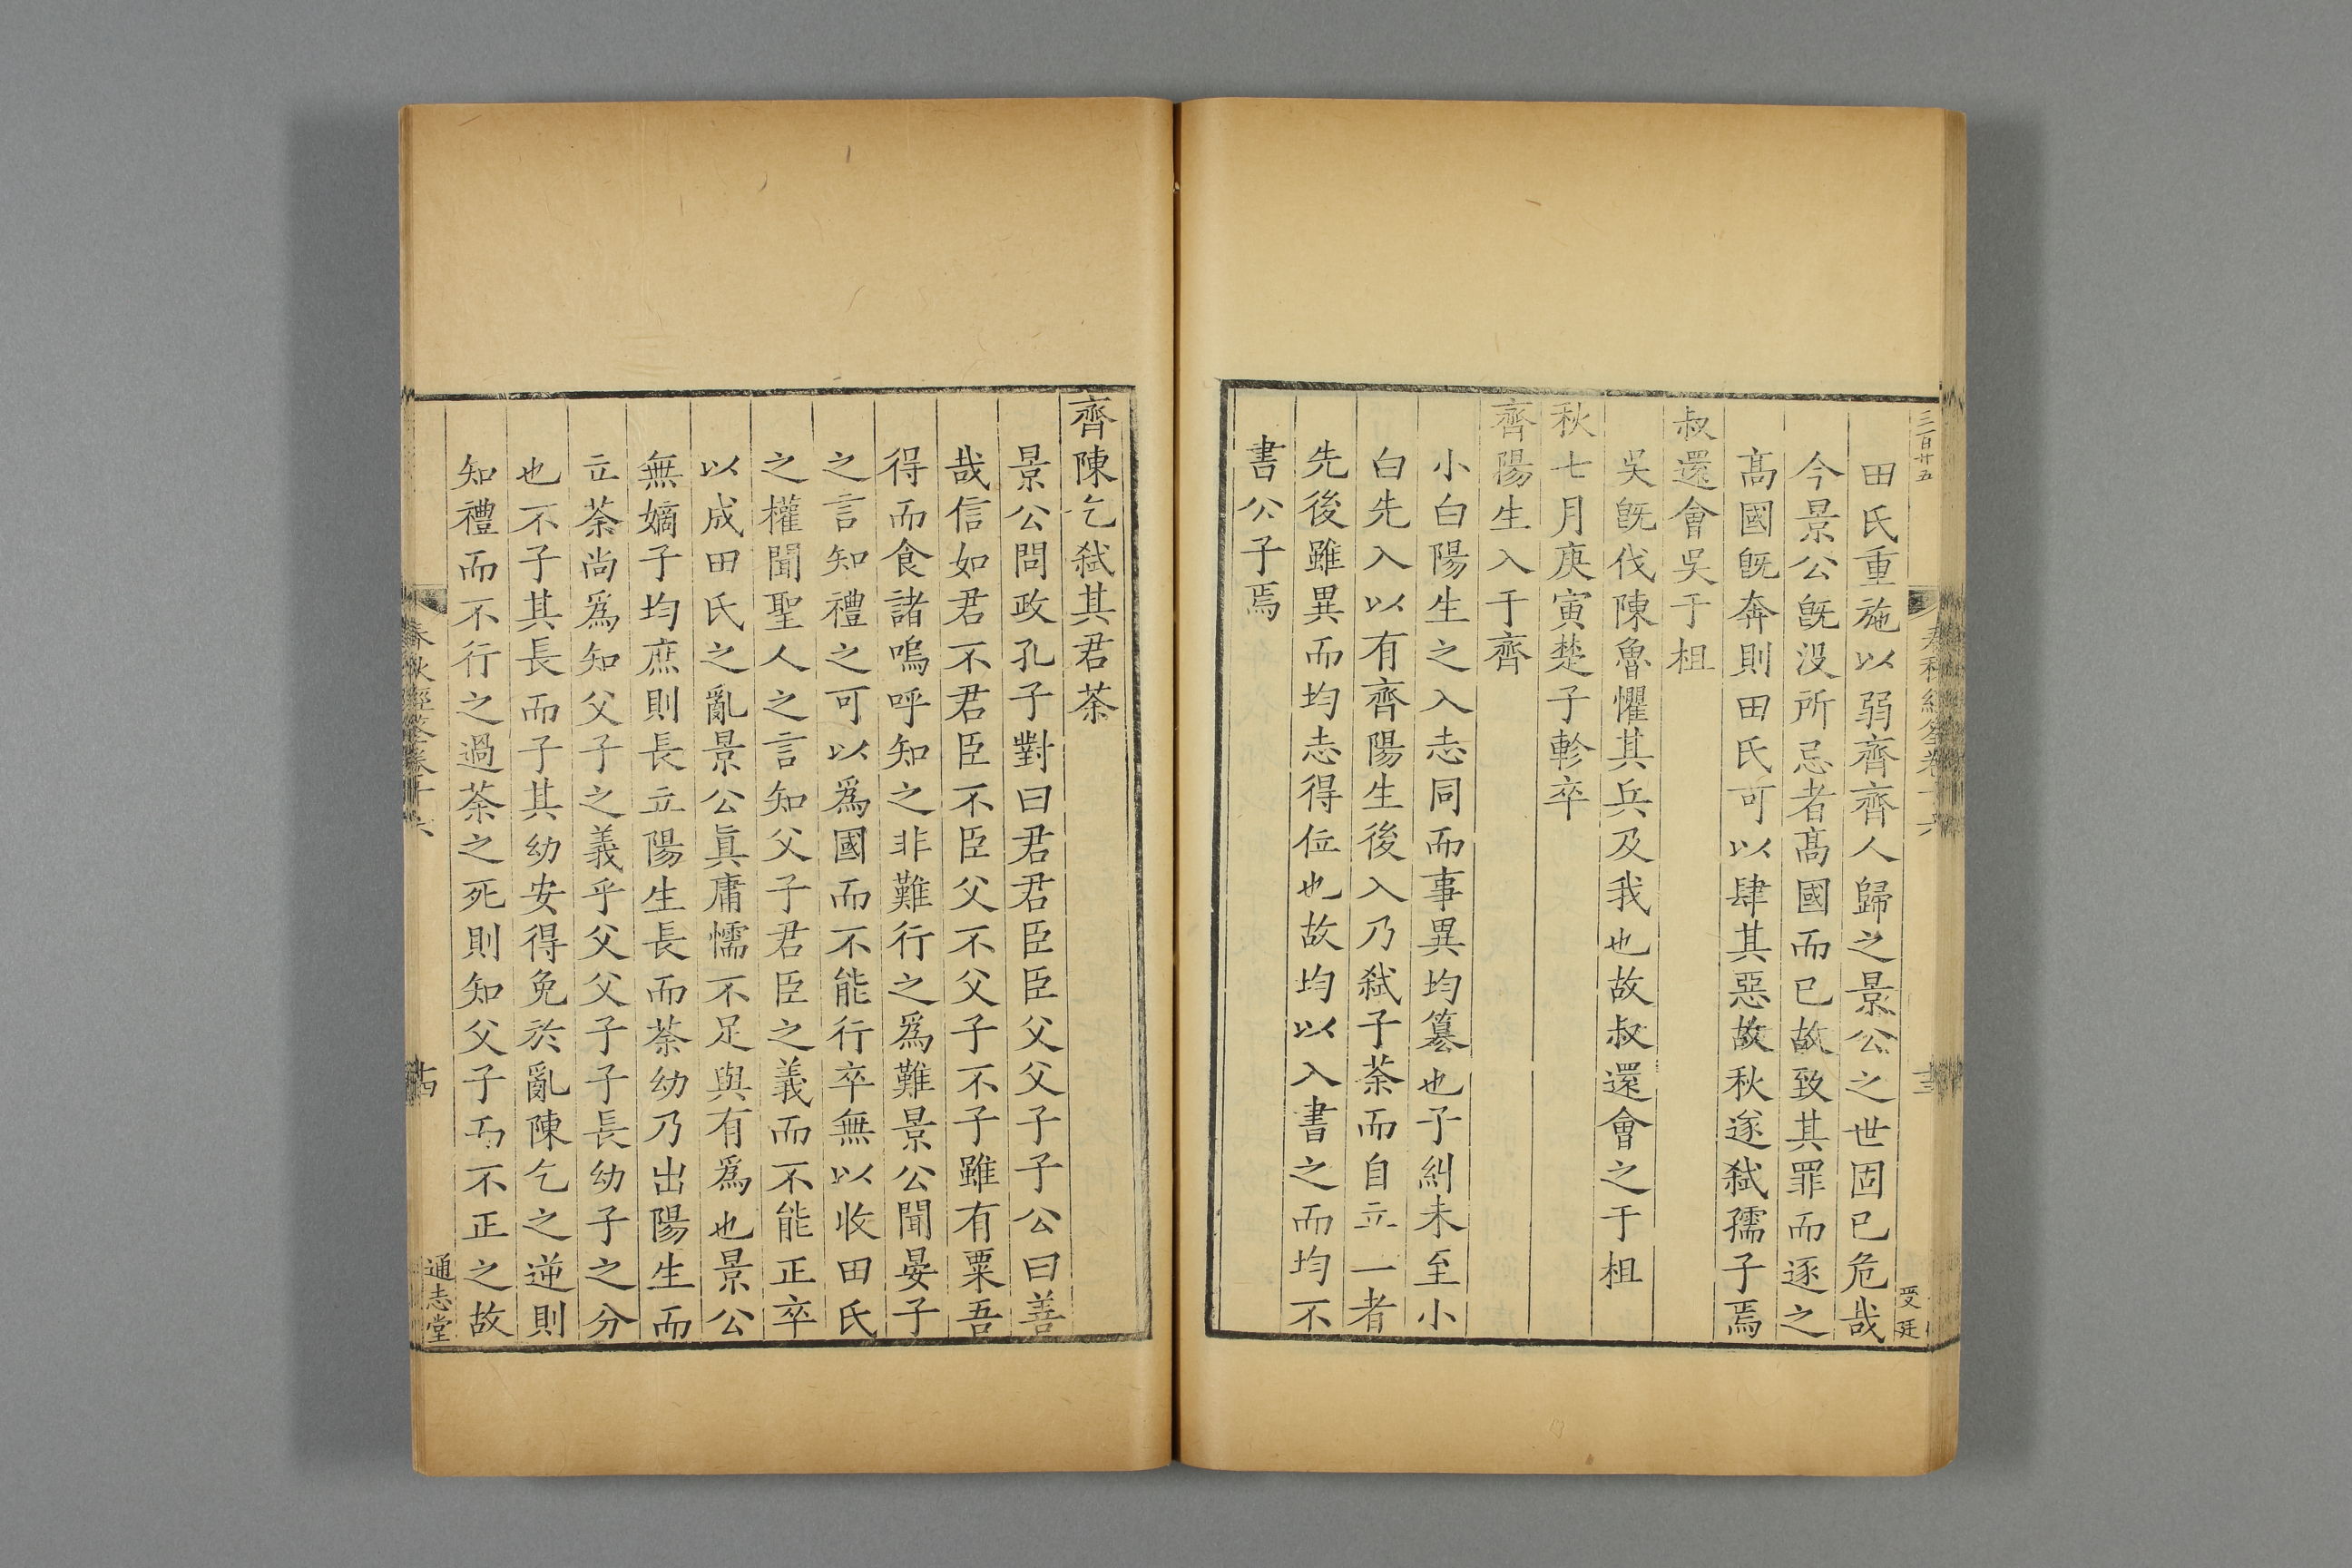 三百廿五
春秋經筌卷十六
受廷
田氏重施以弱齊齊人歸之景公之世固已危哉
今景公旣没所忌者髙國而已故致其罪而逐之
髙國旣奔則田氏可以肆其惡故秋遂弑孺子焉
叔還會吳于柤
吳旣伐陳魯懼其兵及我也故叔還會之于柤
秋七月庚寅楚子軫卒
齊陽生入于齊
小白陽生之入志同而事異均簒也子糾未至小
白先入以有齊陽生後入乃弑子荼而自立一者
先後雖異而均志得位也故均以入書之而均不
書公子焉
齊陳乞弑其君荼
景公問政孔子對曰君君臣臣父父子子公曰善
哉信如君不君臣不臣父不父子不子雖有粟吾
得而食諸嗚呼知之非難行之爲難景公聞晏子
之言知禮之可以爲國而不能行卒無以收田氏
之權聞聖人之言知父子君臣之義而不能正卒
以成田氏之亂景公眞庸懦不足與有爲也景公
無嫡子均庶則長立陽生長而荼幼乃出陽生而
立荼尚爲知父子之義乎父父子子長幼子之分
也不子其長而子其幼安得免於亂陳乞之逆則
知禮而不行之過荼之死則知父子而不正之故
春秋經筌卷十六
十四
通志堂